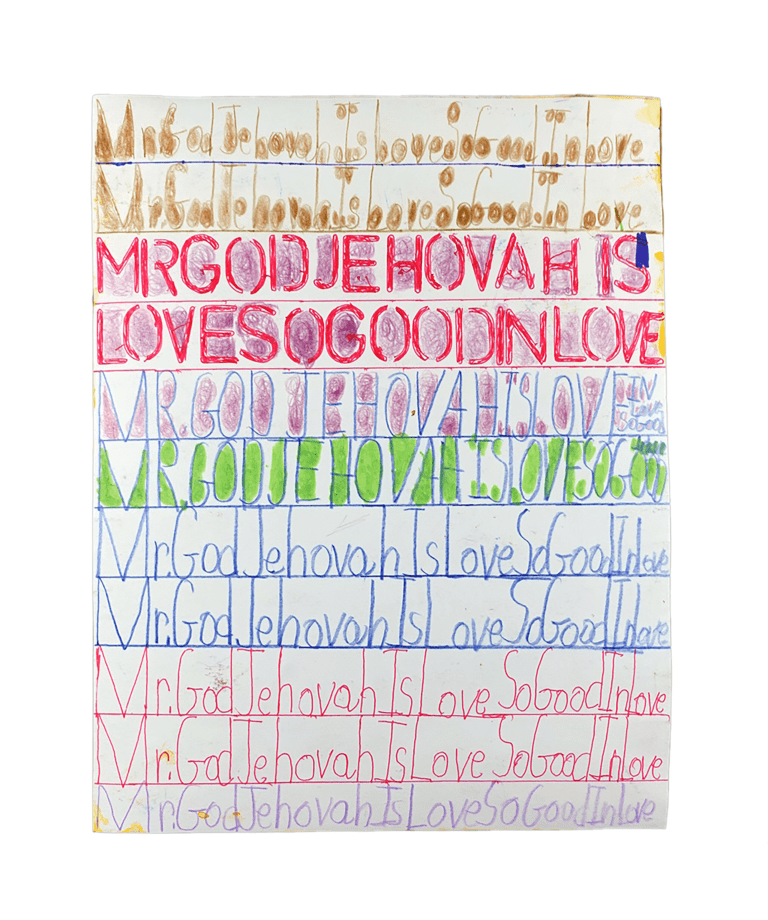 Mr. God Jehovah is Love So Good in Love
Mr. God Jehovah is Love So Good in Love
MR GOD JEHOVAH IS
LOVE SO GOOD IN LOVE
MR. GOD JEHOVAH IS LOVE IN LOVE SO GOOD
MR. GOD JEHOVAH IS LOVE SO GOOD
Mr. God Jehovah Is Love So Good In Love
Mr. God Jehovah Is Love So Good In Love
Mr. God Jehovah Is Love So Good In Love
Mr. God Jehovah Is Love So Good In Love
Mr. God Jehovah Is Love So Good In Love